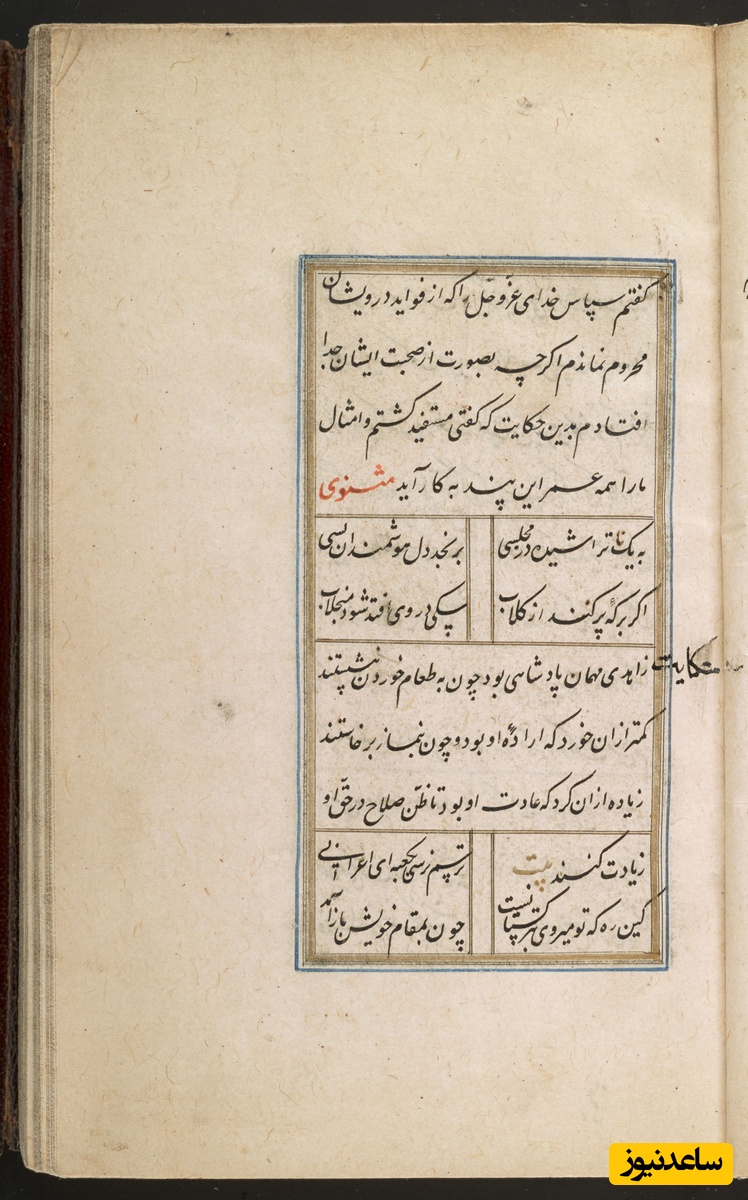 گفتم سپاس خدای عزّ و جلّ را که از فواید درویشان
محروم نماندم اگرچه بصورت از صحبت ایشان جدا
افتادم بدین حکایت که گفتی مستفید گشتم و امثال
مارا همه عمر این پند به کار آید مثنوی
به یک نا تراشیده در مجلسی برنجد دل هوشمندان بسی
اگر برکهٔ پر کنند از گلاب سگی در وی افتد شود منجلاب
حکایت
زاهدی مهمان پادشاهی بود چون به طعام خوردن نشستند
کمتر ازان خورد که ارادهٔ او بود و چون بنماز بر خاستند
زیاده ازان کرد که عادت او بود تا ظنّ صلاح در حقّ او
زیادت کنند بیت ترسم نرسی بکعبه ای اعرابی
کین ره که تو میروی بترکستانست چون بمقام خویش باز آمد
ساعدنیوز